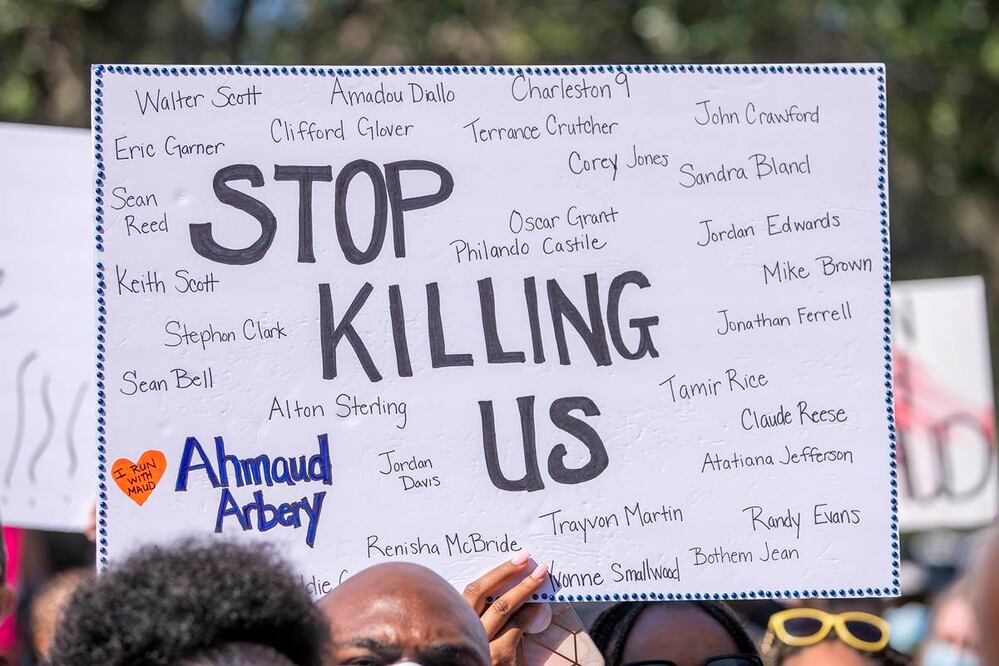 Walter Scott
Amadou Diallo
Charleston 9
John Crawford
Eric Garner
Clifford Glover
Terrance Crutcher
Corey Jones
Sandra Bland
Sean
Reed
STOP
Oscar Grant
Philando Castile
Jordan Edwards
Keith Scott
KILLING
Mike Brown
Stephon Clark
Jonathan Ferrell
Sean Bell
Alton Sterling
US
Tamir Rice
Claude Reese
I RUN
WITH
MAUD
Ahmaud
Arbery
Jordan
Davis
Atatiana Jefferson
Trayvon Martin
Randy Evans
Renisha McBride
Bothem Jean
Smallwood